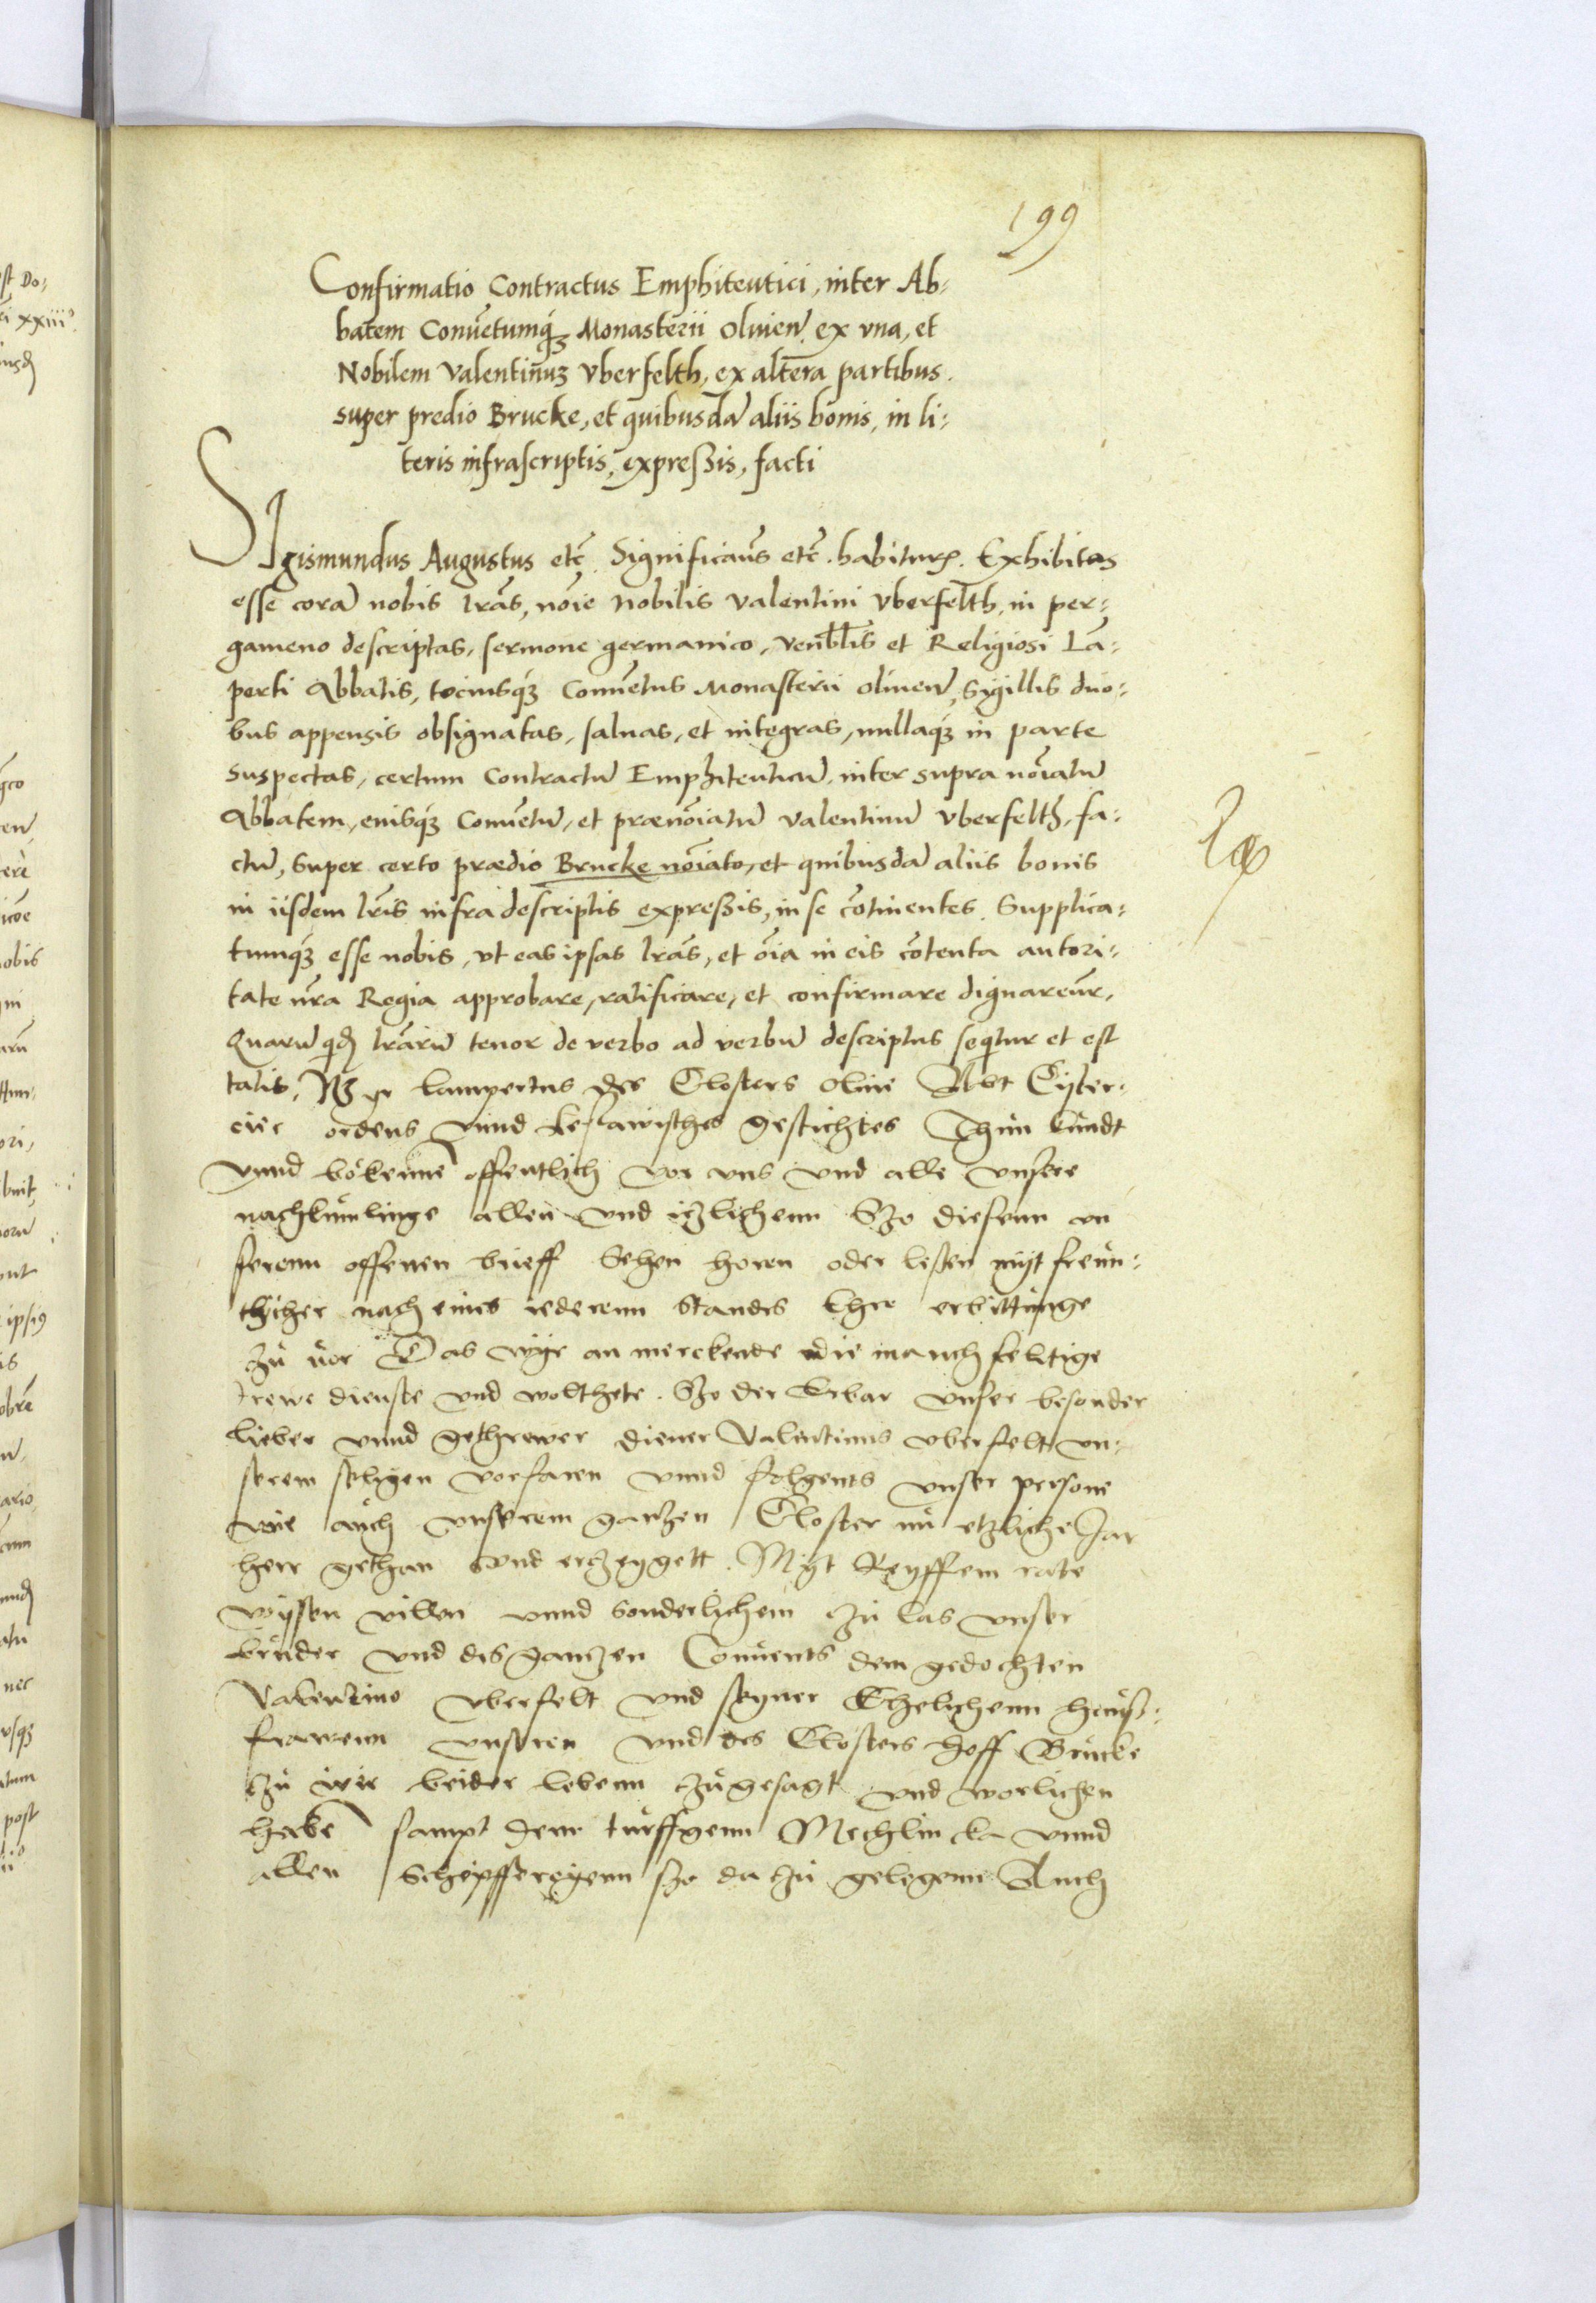 199
Confirmatio Contractus Emphiteutici, inter Ab-
batem Conuētumq₃ Monasterii Oliuen̄. ex vna, et
Nobilem Valentinuȝ Vberfelth, ex altera partibus.
super predio Brucke, et quibusdā aliis bonis, in li-
teris infrascriptis, expressis, facti
SIgismundus Augustus etc̄. Significaūs etc̄. habituꝝ. Exhibitas
esse corā nobis lrās, noīe Nobilis Valentini Vberfelth, in per-
gameno descriptas, sermone germanico, Venbl̄is et Religiosi Lā-
perti Abbatis, tociusq₃ Conuētus Monasterii Oliuen̄, Sigillis duo-
bus appensis obsignatas, saluas, et integras, nullaq₃ in parte
suspectas, certum Contractū Emphiteuticū, inter supra noīatū
Abbatem, eiusq₃ Conuētū, et prænoīatū Valentinū Vberfelth, fa-
ctū, Super certo prædio Brucke noīato, et quibusdā aliis bonis
in iisdem lrīs infra descriptis expressis, in se cōtinentes. Supplica-
tumq₃ esse nobis, vt eas ipsas lrās, et oīa in eis cōtenta autori-
tate nrā Regia approbare, ratificare, et confirmare dignaremr̄,
Quarū qd̄ lrārū tenor de verbo ad verbū descriptus seqtur et est
talis. Wyr Lampertus des Closters Oliue Abt Cister-
cier ordens vnnd gestichtes Thun kundt
Vnnd bekenne offentlich vor vns vnd alle vnsere
nachkumlinge allen vnd itzlichenn Szo diesenn vn
serenn offenen brieff Sehen horen oder lesen mijt freun-
tlicher nach eines iederenn Standes Ehre erbittunge
zu vor Das wyr an merckende die manchfeltige
trewe dienste vnd wolthete. Szo der Erbar vnser besonder
lieber vnnd gethrewer diener Valentinus vberfelt vn-
serem seligen vorfaren vnnd folgents vnser persone
wie auch vnserem gantzen Closter nu etzliche Jar
herr gethan vnd ertzeygett. Myt Reyffem rate
wyssen willen vnnd sonderlichem zu las vnser
bruder vnd des gantzen Conuents dem gedochten
Valentino vberfelt vnd seyner Ehelichenn hauss-
frawenn vnseren vnd des Closters hoff Brucke
zu irer beider lebenn zugesagt vnd worlichen
habē sampt denn turffgenn Mechlin ka vnnd
allen Scheppfereyenn szo da zu gelegenn Auch